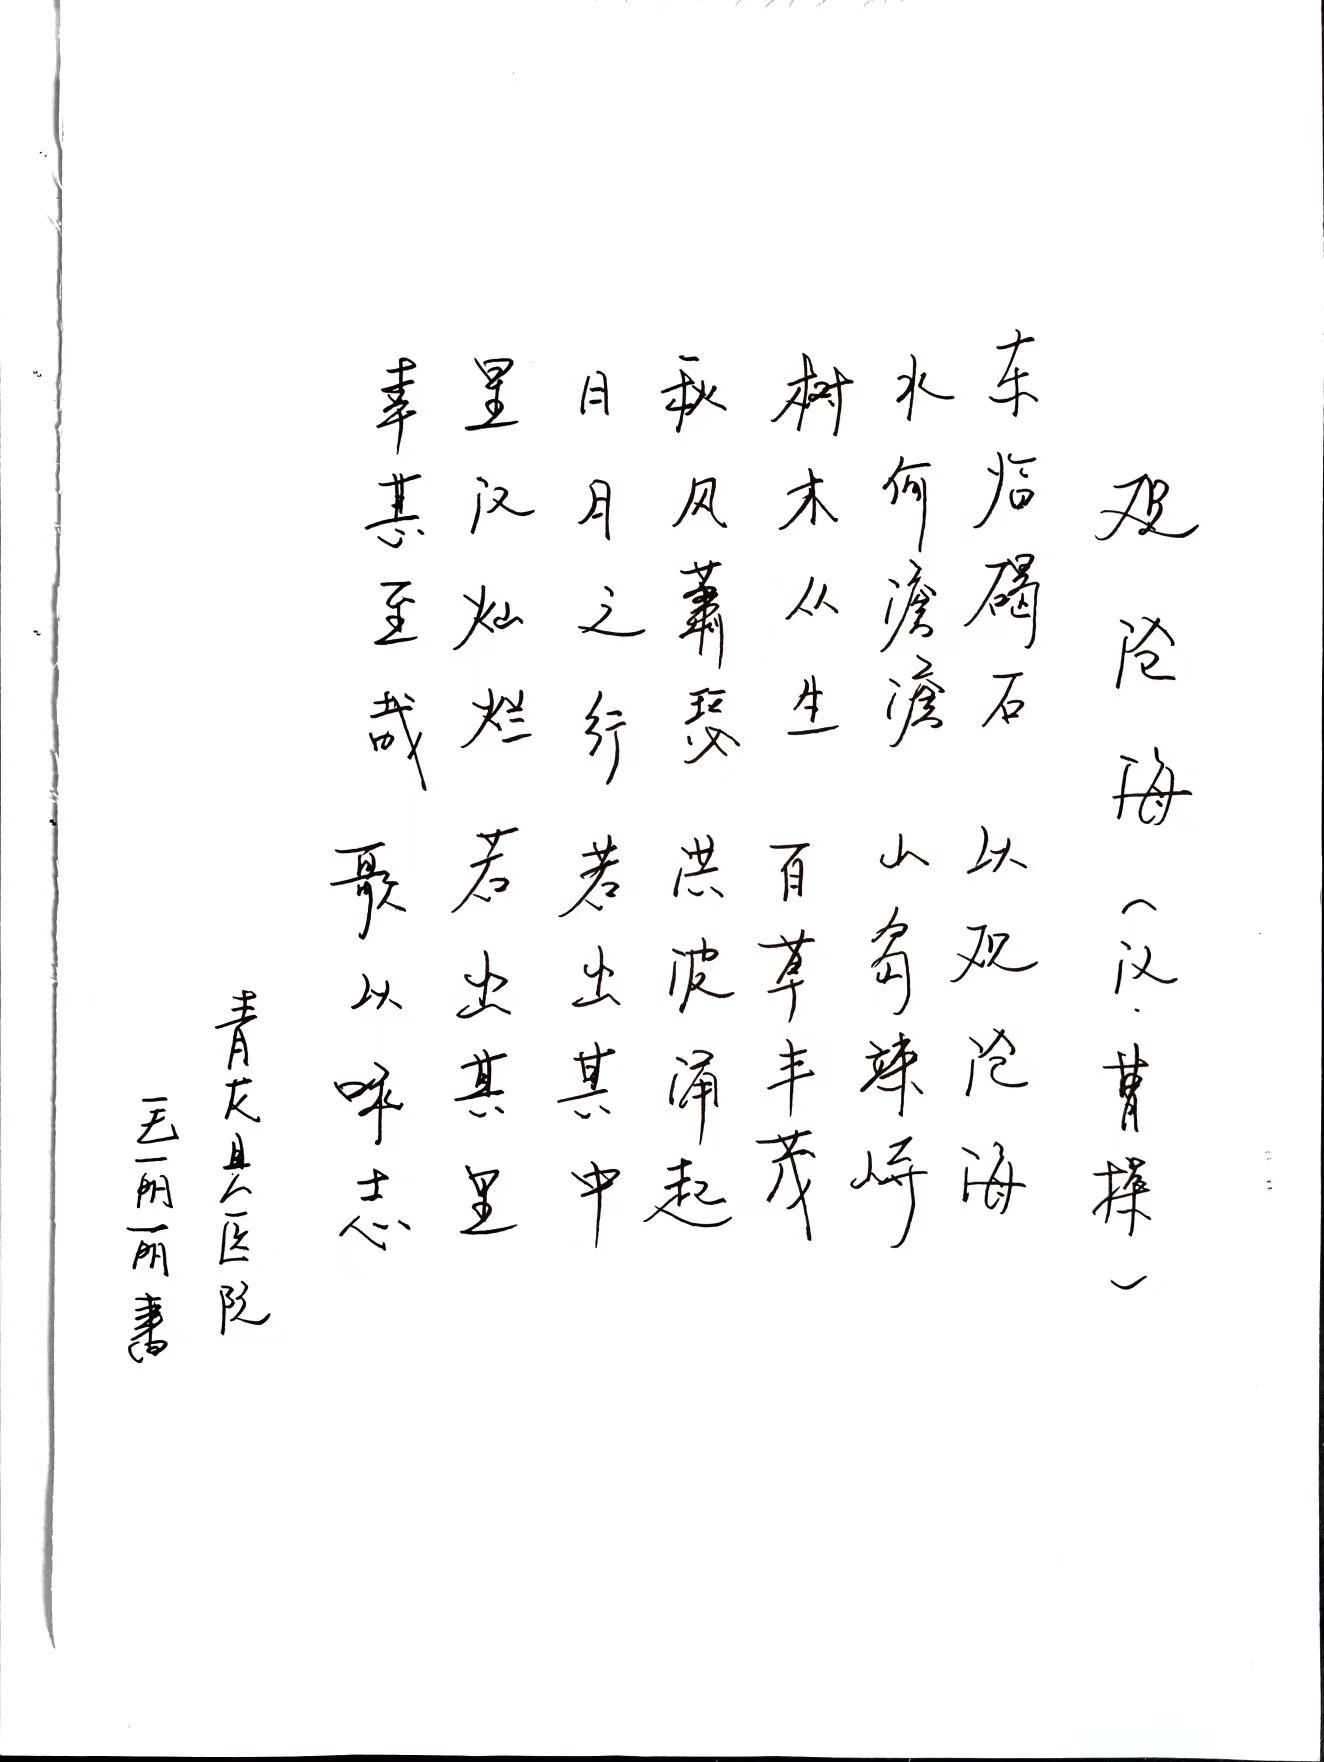 观沧海（汉·曹操）
东临碣石 以观沧海
水何澹澹 山岛竦峙
树木从生 百草丰茂
秋风萧瑟 洪波涌起
日月之行 若出其中
星汉灿烂 若出其里
幸甚至哉 歌以咏志
青龙县医院
王丽丽书